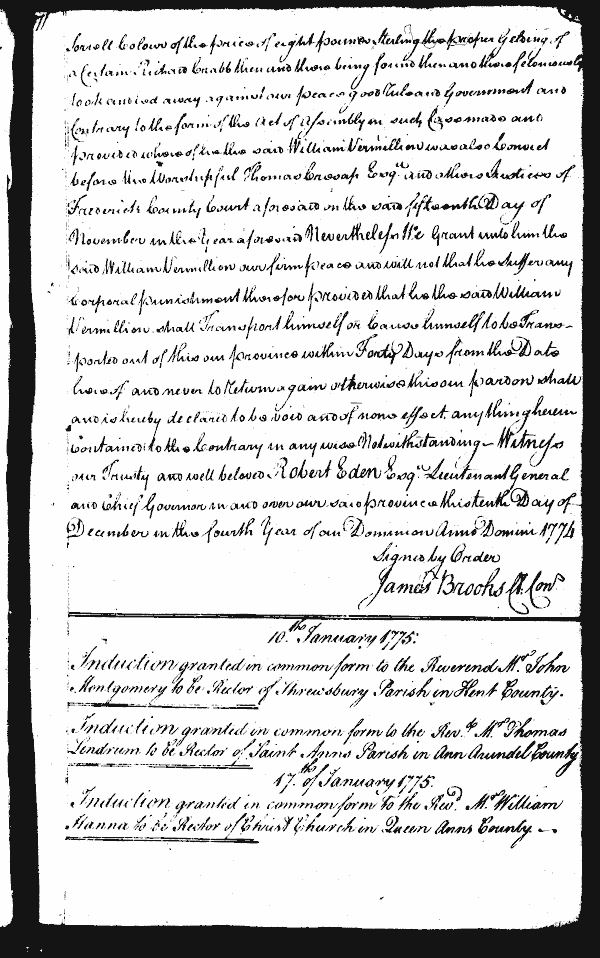 Sorrell Colour of the price of eight pounds Sterling the proper Gelding of
a Certain Richard Crabb then and there being found then and there feloniously
took and led away against our peace good Rule and Government and
Contrary to the form of the Act of Assembly in such Case made and
provided whereof he the said William Vermillion was also Convict
before the Worshipfful Thomas Cresap Esqr. and others Justices of
Frederick County Court aforesaid on the said fifteenth Day of
November in the Year aforesaid Nevertheless We Grant unto him the
said William Vermillion our firm peace and will not that he Suffer any
Corporal punishment therefor provided that he the said William
Vermillion shall Transport himself or Cause himself to be Trans-
ported out of this our province within Forty Days from the Date
hereof and never to Return again otherwise this our pardon shall
and is hereby declared to be void and of none effect, any thing herein
Contained to the Contrary in any wise Notwithstanding - Witness
our Trusty and well beloved Robert Eden Esqr. Lieutenant General
and Chief Governor in and over our said province this tenth Day of
December in the fourth Year of our Dominion Anno Domini 1774
Signed by Order
James Brooks Cl. Conr
10th January 1775.
Induction granted in common form to the Reverend Mr. John
Montgomery to be Rector of Shrewsbury Parish in Kent County.
Induction granted in common form to the Revd. Mr. Thomas
Lendrum to be Rector of Saint Anns Parish in Ann Arundel County
17th of January 1775.
Induction granted in common form to the Revd. Mr. William
Hanna to be Rector of Christ Church in Queen Anns County -